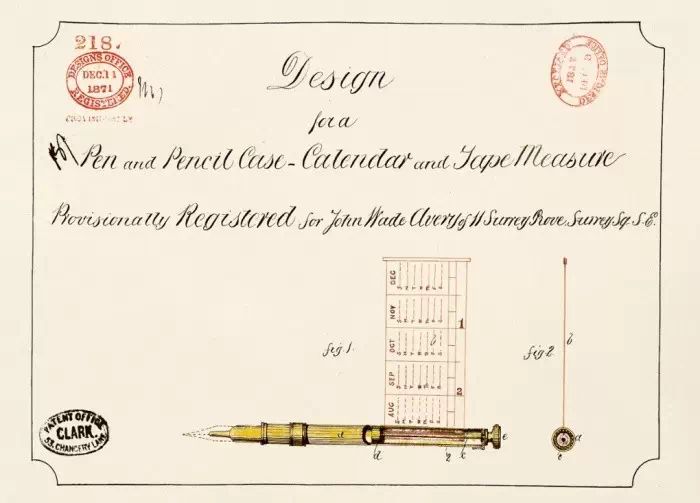 218.
DESIGNS OFFICE
DEC. 11
1871
REGISTERED.
PROVISIONALLY
Design
for a
Pen and Pencil Case - Calendar and Tape Measure
Provisionally Registered for John Wade Avery of 11 Surrey Grove, Surrey Sq. S.E.
DEC
NOV
OCT
SEP
AUG
1
2
b
fig 1.
fig 2.
b
d
a
2
c
e
a
e
PATENT OFFICE
CLARK.
53, CHANCERY LANE